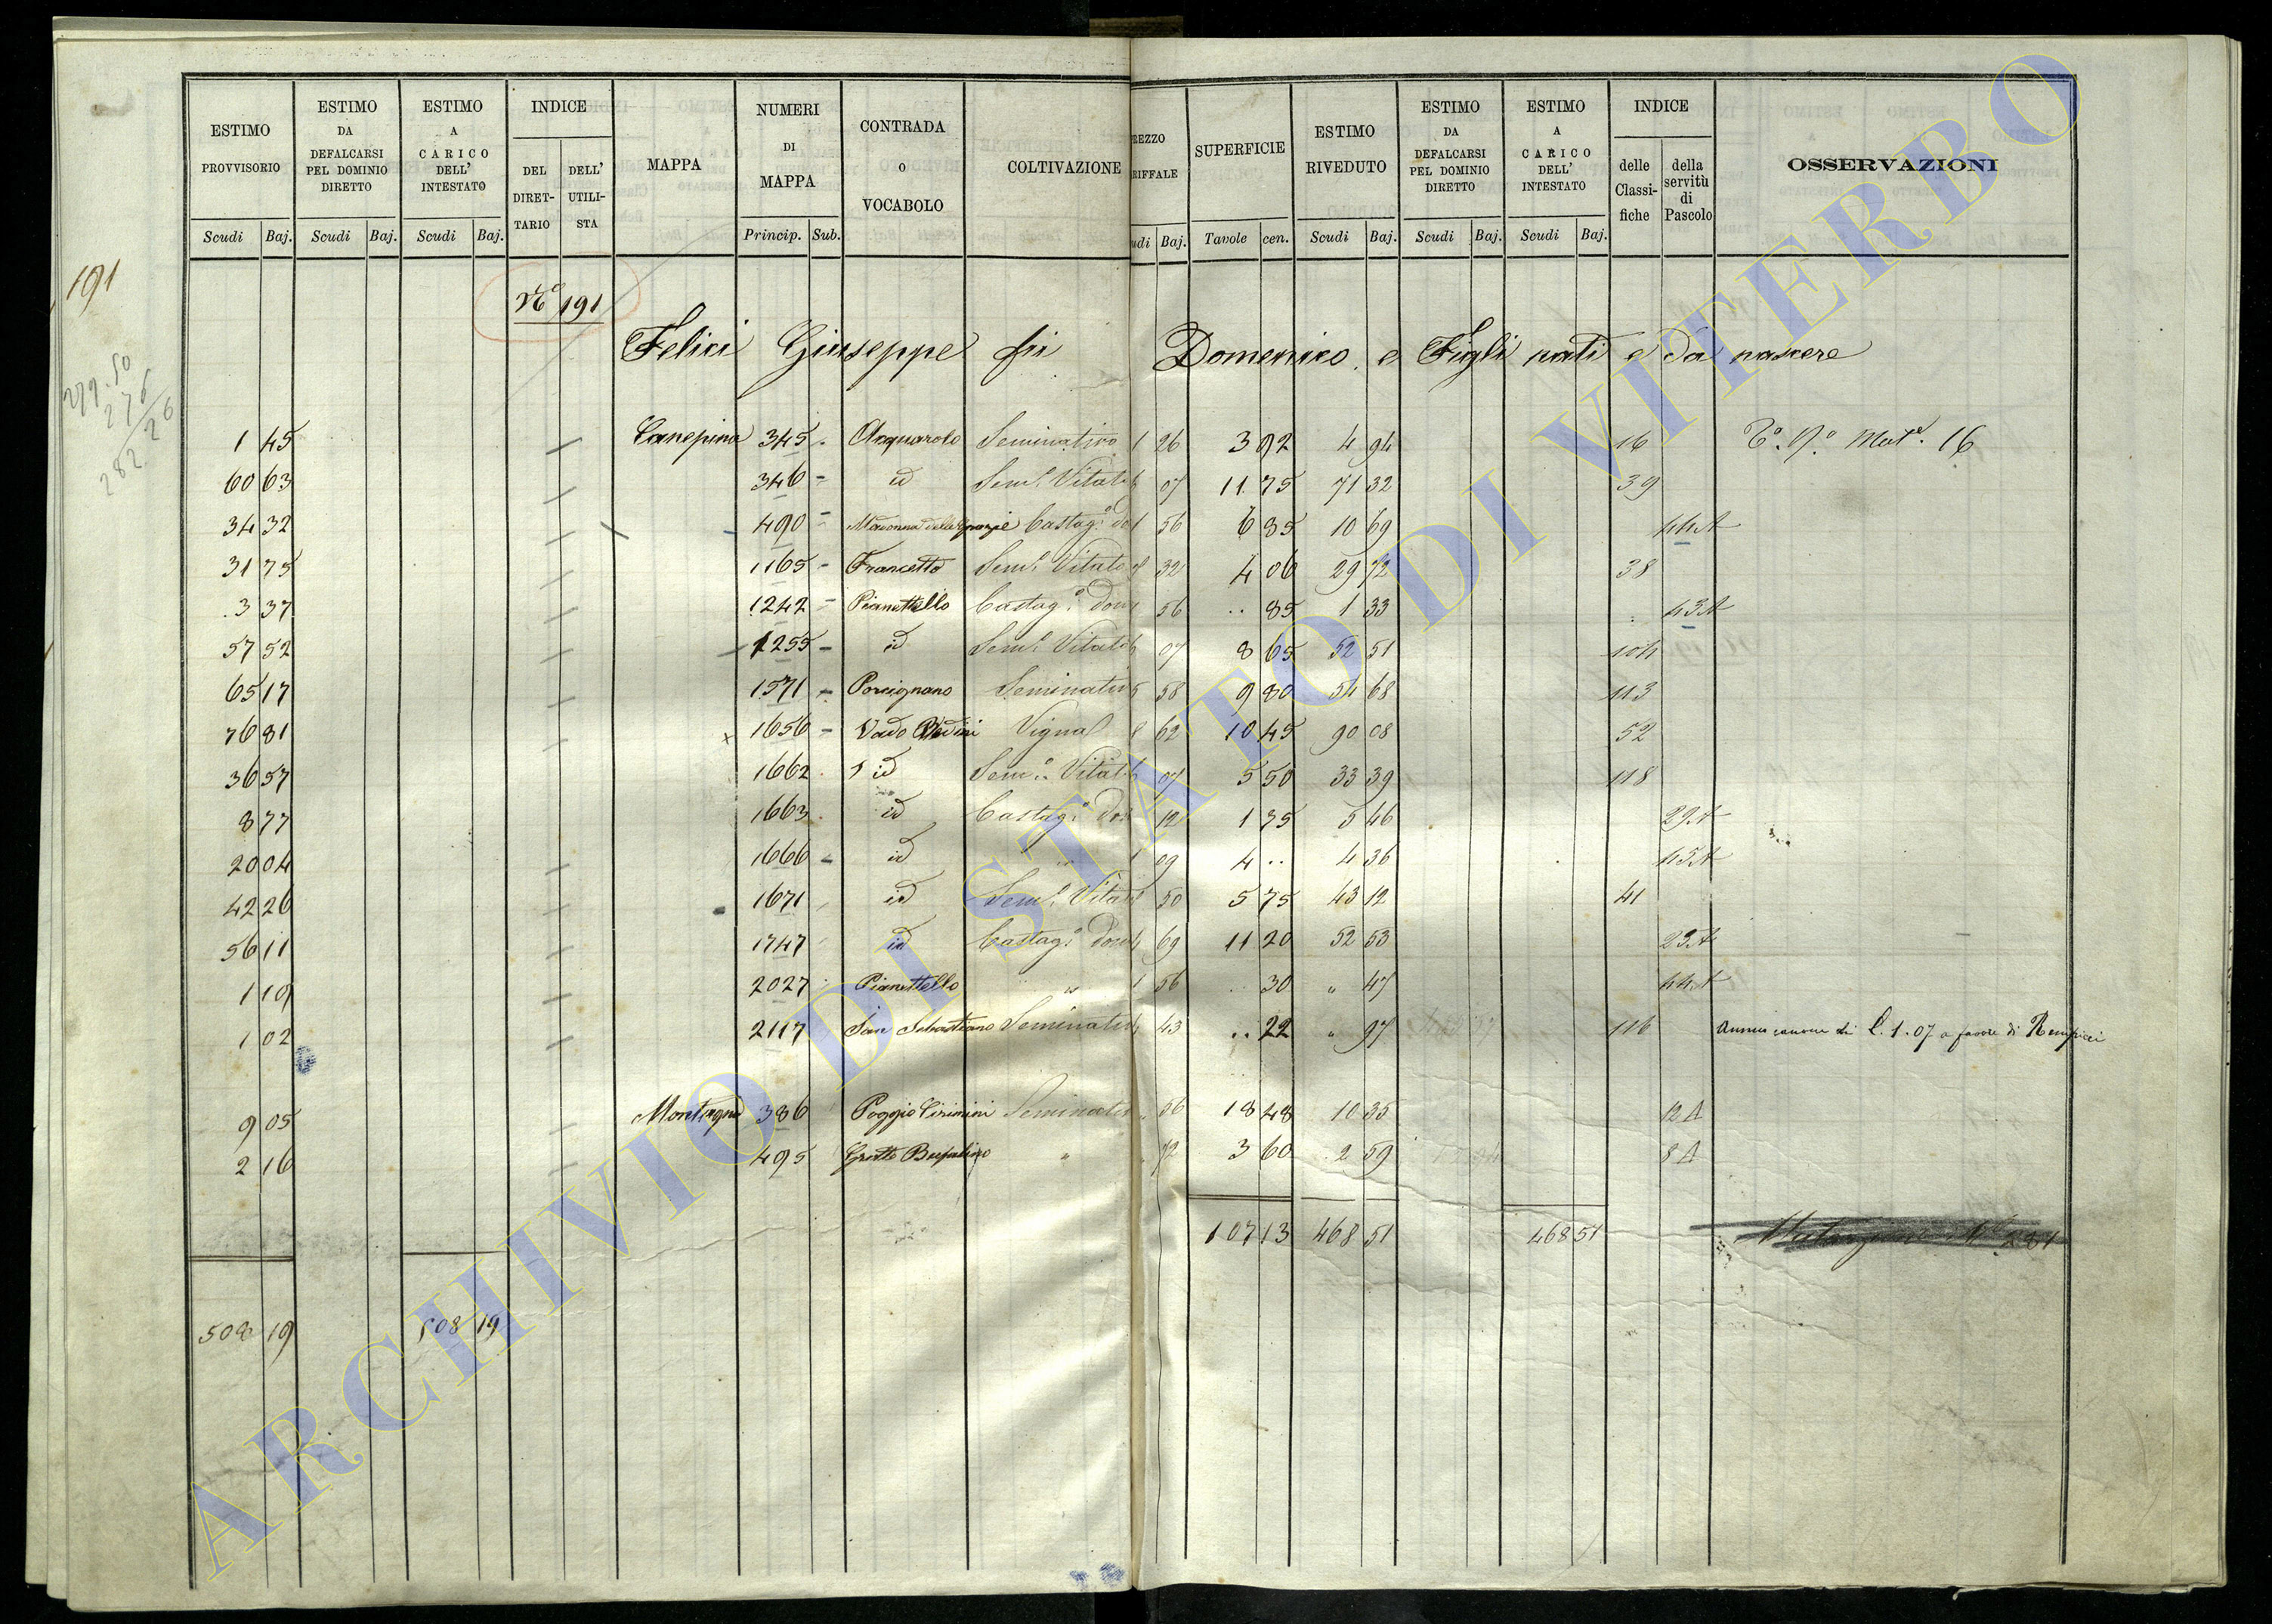 ESTIMO PROVVISORIO Scudi Baj.
ESTIMO DA DEFALCARSI PEL DOMINIO DIRETTO Scudi Baj.
ESTIMO A CARICO DELL' INTESTATO Scudi Baj.
INDICE DEL DIRET-TARIO DELL' UTILI-STA
MAPPA
NUMERI DI MAPPA Princip. Sub.
CONTRADA o VOCABOLO
COLTIVAZIONE
REZZO RIFFALE udi Baj.
SUPERFICIE Tavole cen.
ESTIMO RIVEDUTO Scudi Baj.
ESTIMO DA DEFALCARSI PEL DOMINIO DIRETTO Scudi Baj.
ESTIMO A CARICO DELL' INTESTATO Scudi Baj.
INDICE delle Classi-fiche della servitù di Pascolo
OSSERVAZIONI
191
N.º 191
Felici Giuseppe fu Domenico e Figli nati e da nascere
279.50
276
282 26
1 45 Canepina 345 Acquarolo Seminativo 1 26 3 92 4 94 16 Mat. 16
60 63 346 id Sem. Vitato 6 07 11 75 71 32 39
34 32 490 Madonna delle Grazie Castag. do 1 56 6 85 10 69 44 A
31 75 1165 Francetto Sem. Vitato 7 32 4 06 29 72 38
3 37 1242 Pianettello Castag. Dom 1 56 .. 85 1 33 43 A
57 52 1255 id Sem. Vitato 6 07 8 65 52 51 104
65 17 1571 Porcignano Seminativ 5 58 9 80 54 68 113
76 81 1656 Vado Vigna 8 62 10 45 90 08 52
36 57 1662 id Sem. Vitat 6 07 5 50 33 39 118
8 77 1663 id Castag. Do 12 1 75 5 46 29 A
20 04 1666 id " 1 09 4 .. 4 36 45 A
42 26 1671 id Sem. Vitat 50 5 75 43 12 41
56 11 1747 id Castag. Dom 4 69 11 20 52 53 23 A
1 19 2027 Pianettello " 1 56 30 " 47 44 A
1 02 2117 San Sebastiano Seminativ 4 43 .. 22 " 97 116 Annuo canone di L. 1.07 a favore di
9 05 Montagna 386 Poggio Cirimini Seminativ 56 18 48 10 35 12 A
2 16 495 Grotte " 72 3 60 2 59 8 A
107 13 468 51 468 51
508 19 508 19
ARCHIVIO DI STATO DI VITERBO